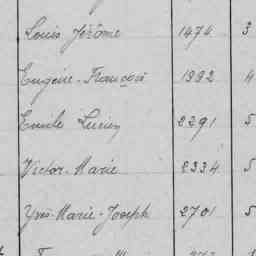 Louis Jérôme 1474 3
Eugène-François 1992 4
Emile Lucien 2291 5
Victor-Marie 2334 5
Yves-Marie-Joseph 2701 5